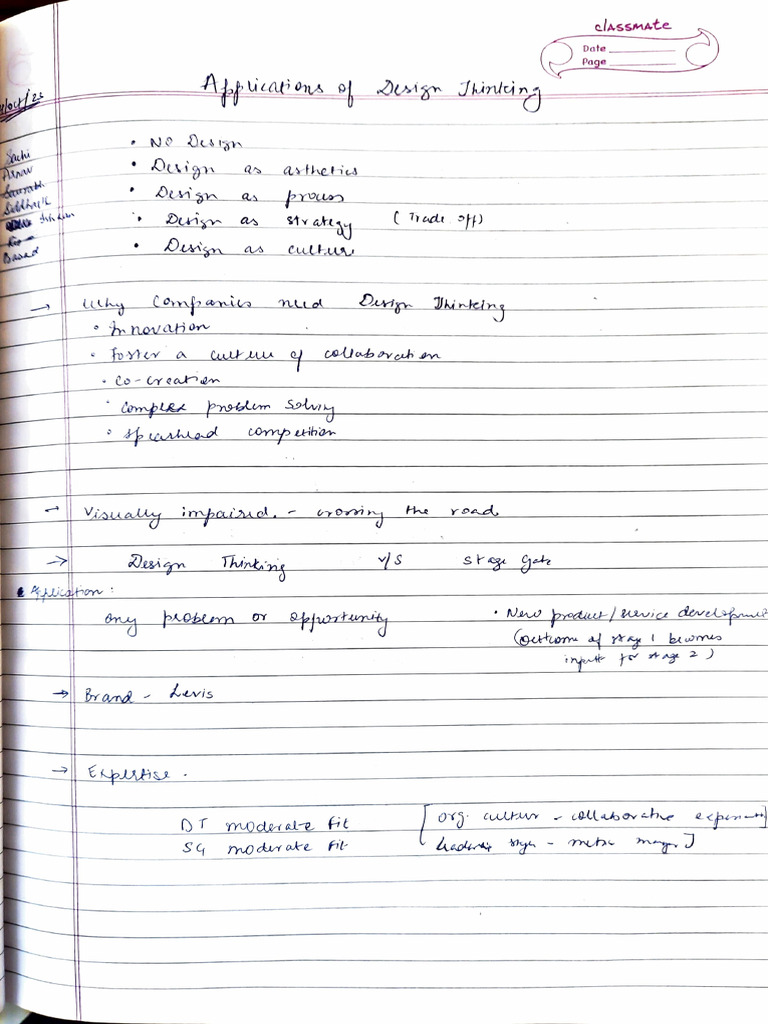 classmate
Date
Page
Applications of Design Thinking
/oct/25
Sachi
Arnav
Saurabh
Siddharth
• No Design
• Design as asthetics
• Design as process
• Design as strategy (Trade off)
• Design as culture
→ Why companies need Design Thinking
• Innovation
• Foster a culture of collaboration
• co-creation
• complex problem solving
• spearhead competition
→ Visually impaired. - crossing the road
→ Design Thinking v/s stage gate
• Application:
any problem or opportunity • New product/service development
(outcome of stage 1 becomes
inputs for stage 2)
→ Brand - Levis
→ Expertise.
DT moderate fit [org. culture - collaborative
SG moderate fit leadership style -